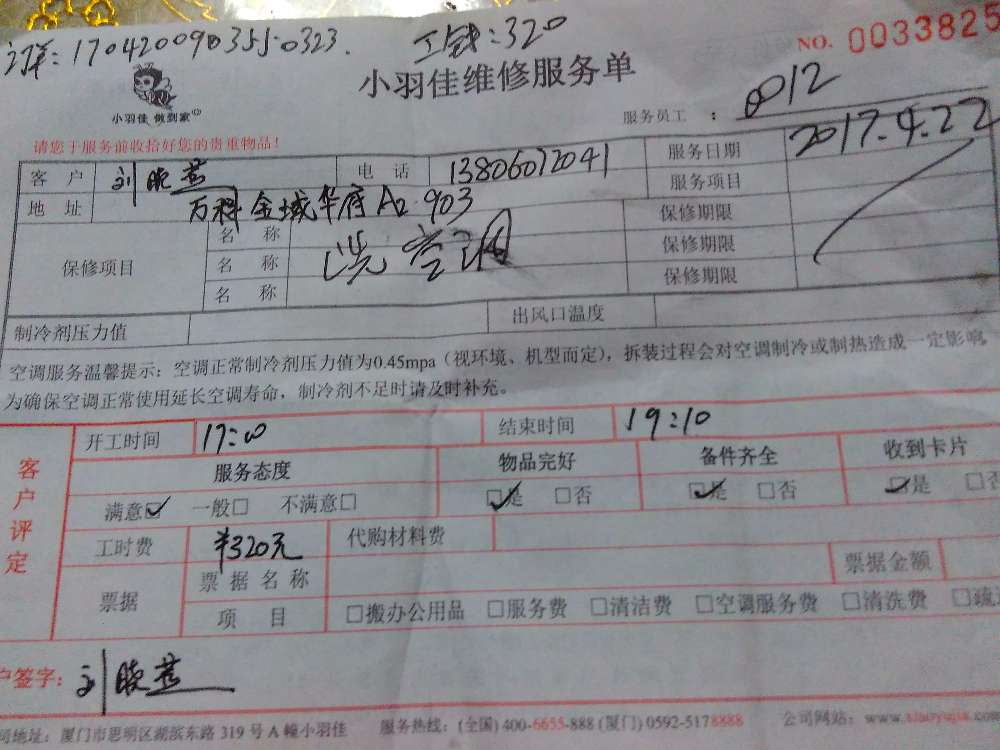 订单: 170420090355-0323. 工钱:320
NO. 0033825
小羽佳维修服务单
小羽佳 做到家
服务员工: 0012
请您于服务前收拾好您的贵重物品!
客户 刘晓燕 电话 13806072041 服务日期 2017.4.22
地址 万科金域华府A2 903 服务项目
保修项目 名称 洗空调 保修期限
名称 保修期限
名称 保修期限
制冷剂压力值 出风口温度
空调服务温馨提示:空调正常制冷剂压力值为0.45mpa(视环境、机型而定),拆装过程会对空调制冷或制热造成一定影响,
为确保空调正常使用延长空调寿命,制冷剂不足时请及时补充。
客户评定
开工时间 17:00 结束时间 19:10
服务态度 物品完好 备件齐全 收到卡片
满意☑ 一般□ 不满意□ ☑是 □否 ☑是 □否 ☑是 □否
工时费 ¥320元 代购材料费
票据 票据名称 票据金额
项目 □搬办公用品 □服务费 □清洁费 □空调服务费 □清洗费 □疏
户签字: 刘晓燕
司地址:厦门市思明区湖滨东路 319 号 A 幢小羽佳 服务热线:(全国) 400-6655-888 (厦门) 0592-5178888 公司网站:www.xiaoyujia.com